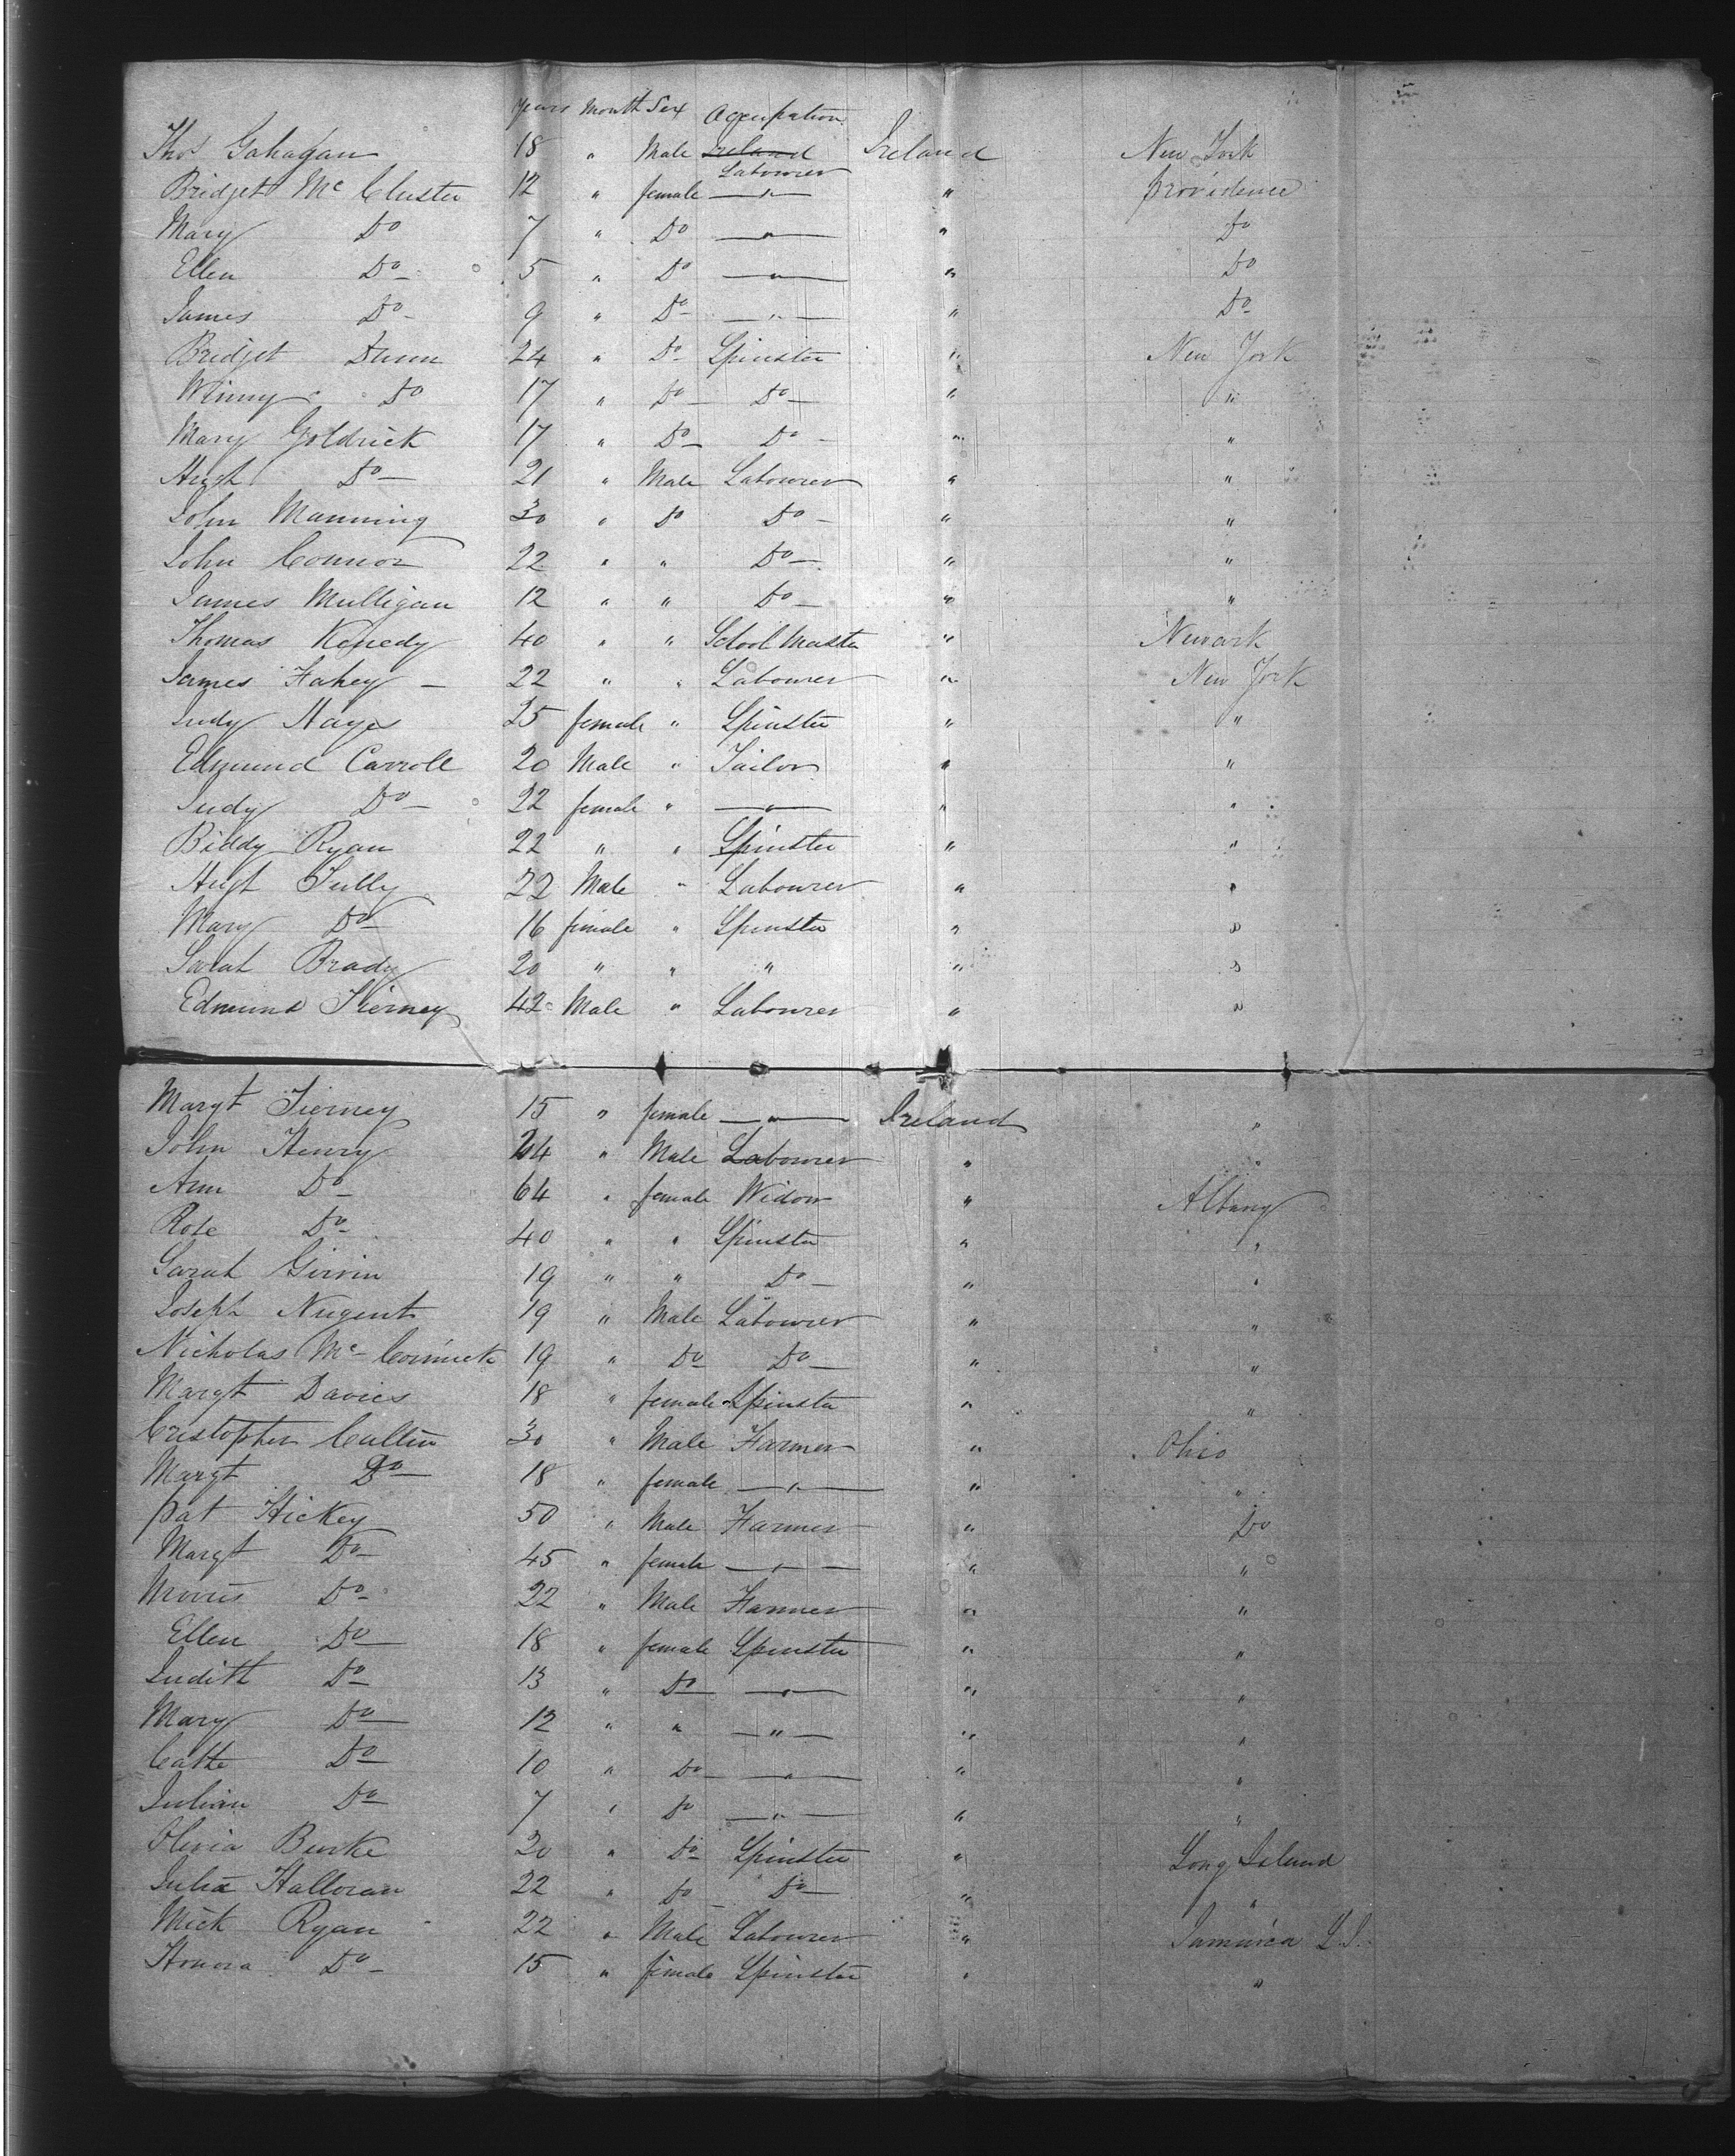 years Month Sex Occupation
Thos Gahagan 18 " Male Ireland Labourer Ireland New York
Bridget Mc Cluster 12 " female — " — " providence
Mary Do 7 " Do — " — " Do
Ellen Do 5 " Do — " — " Do
James Do 9 " Do — " — " Do
Bridget Dunn 24 " Do Spinster " New York
Winny Do 17 " Do Do " "
Mary Goldrick 17 " Do Do " "
Hugh Do 21 " Male Labourer " "
John Manning 30 " Do Do " "
John Connor 22 " " Do " "
James Mulligan 12 " " Do " "
Thomas Kenedy 40 " " School Master " Newark
James Fahey — 22 " " Labourer " New York
Judy Hayes 25 female " Spinster " "
Edmund Carroll 20 Male " Tailor " "
Judy Do 22 female " — " — " "
Biddy Ryan 22 " " Spinster " "
Hugh Tully 22 Male " Labourer " "
Mary Do 16 female " Spinster " "
Sarah Brady 20 " " " " "
Edmund Tierney 42 Male " Labourer " "
Margt Tierney 15 " female — " — Ireland "
John Henry 24 " Male Labourer " "
Ann Do 64 " female Widow " Albany
Rose Do 40 " " Spinster " "
Sarah Girvin 19 " " Do " "
Joseph Nugent 19 " Male Labourer " "
Nicholas Mc Cormick 19 " Do Do " "
Margt Davies 18 " female Spinster " "
Cristopher Cullin 30 " Male Farmer " Ohio
Margt Do 18 " female — " — " "
pat Hickey 50 " Male Farmer " Do
Margt Do 45 " female — " — " "
Morris Do 22 " Male Farmer " "
Ellen Do 18 " female Spinster " "
Judith Do 13 " Do — " — " "
Mary Do 12 " " — " — " "
Cathe Do 10 " Do — " — " "
Julian Do 7 " Do — " — " "
Olivia Burke 20 " Do Spinster " Long Island
Julia Halloran 22 " Do Do " "
Mick Ryan 22 " Male Labourer " Jamaica L.I.
Honora Do 15 " female Spinster " "